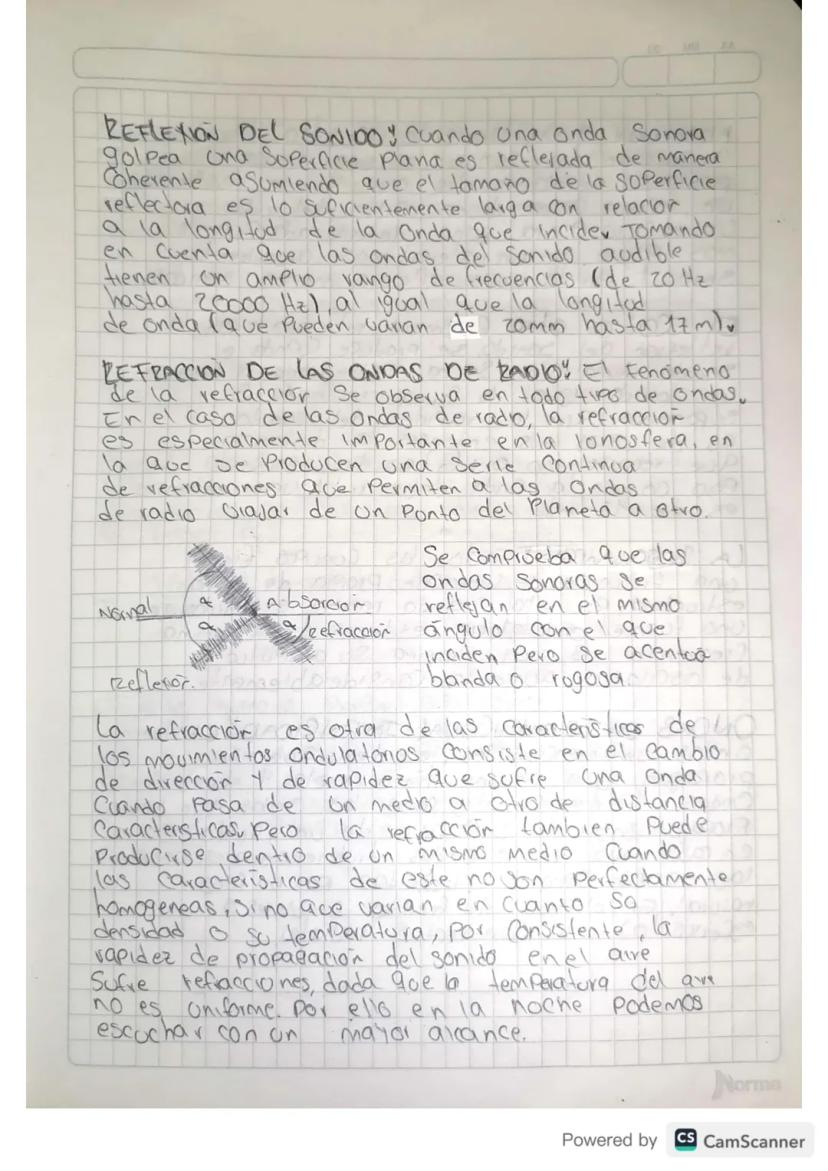 REFLEXION DEL SONIDO: Cuando una onda sonora
golpea una superficie plana es reflejada de manera
coherente asumiendo que el tamaño de la superficie
reflectora es lo suficientemente larga con relacion
a la longitud de la onda que incide. Tomando
en cuenta que las ondas del sonido audible
tienen un amplio rango de frecuencias (de 20 Hz
hasta 20000 Hz), al igual que la longitud
de onda (que pueden varian de 20mm hasta 17m).
REFRACCION DE LAS ONDAS DE RADIO: El Fenomeno
de la refraccion se observa en todo tipo de ondas.
En el caso de las ondas de radio, la refraccion
es especialmente importante en la ionosfera, en
la que se producen una serie continua
de refracciones que permiten a las ondas
de radio viajar de un punto del planeta a otro.
Normal
α
α
Absorcion
α
Refraccion
Reflexion.
Se comprueba que las
ondas sonoras se
reflejan en el mismo
ángulo con el que
inciden pero se acentua
blanda o rogosa.
La refracción es otra de las caracteristicas de
los movimientos ondulatorios consiste en el cambio
de dirección y de rapidez que sufre una onda
cuando pasa de un medio a otro de distancia
caracteristicas, pero la refracción tambien puede
producirse dentro de un mismo medio cuando
las caracteristicas de este no son perfectamente
homogeneas, sino que varian en cuanto sa
densidad o su temperatura, por consistente, la
rapidez de propagación del sonido en el aire
sufre refracciones, dada que la temperatura del aire
no es uniforme. Por ello en la noche podemos
escuchar con un mayor alcance.
Norma
Powered by CS CamScanner